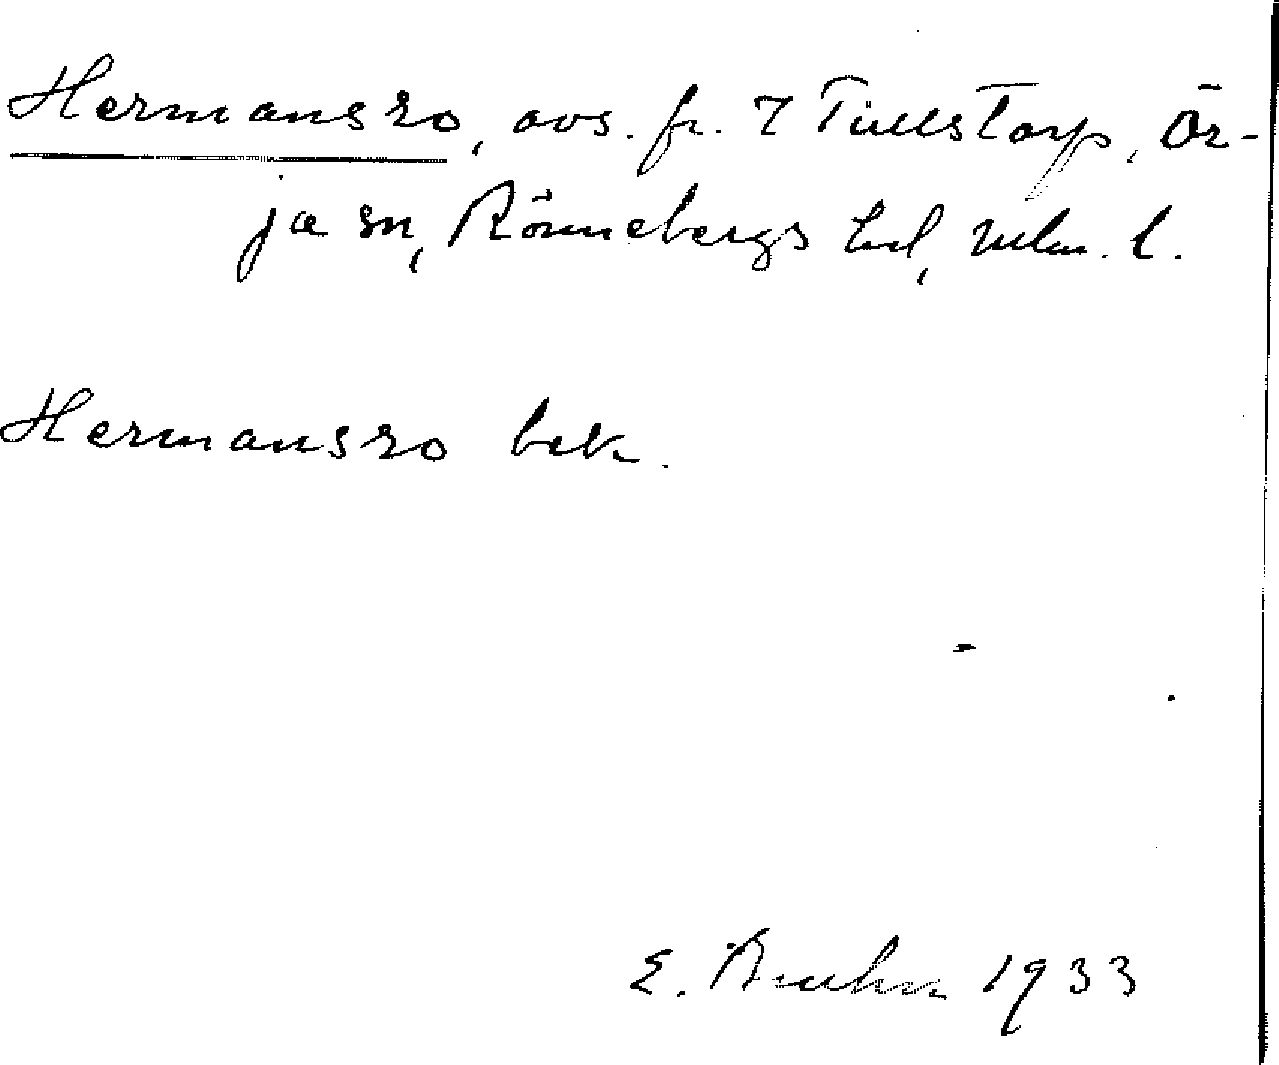 Hermansro, avs. fr. 7 Tullstorp, Ör-
ja sn, Rönnebergs hd, Mlm. l.
Hermansro bek.
E. Bruhn 1933